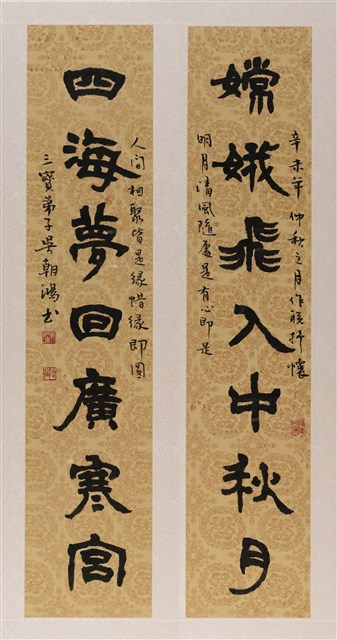 嫦娥飛入中秋月
辛未年仲秋之月作联抒懷
明月清風隨處是有心即是
四海夢回廣寒宮
人间相聚皆是緣惜緣即圓
三寶弟子吳朝鴻书